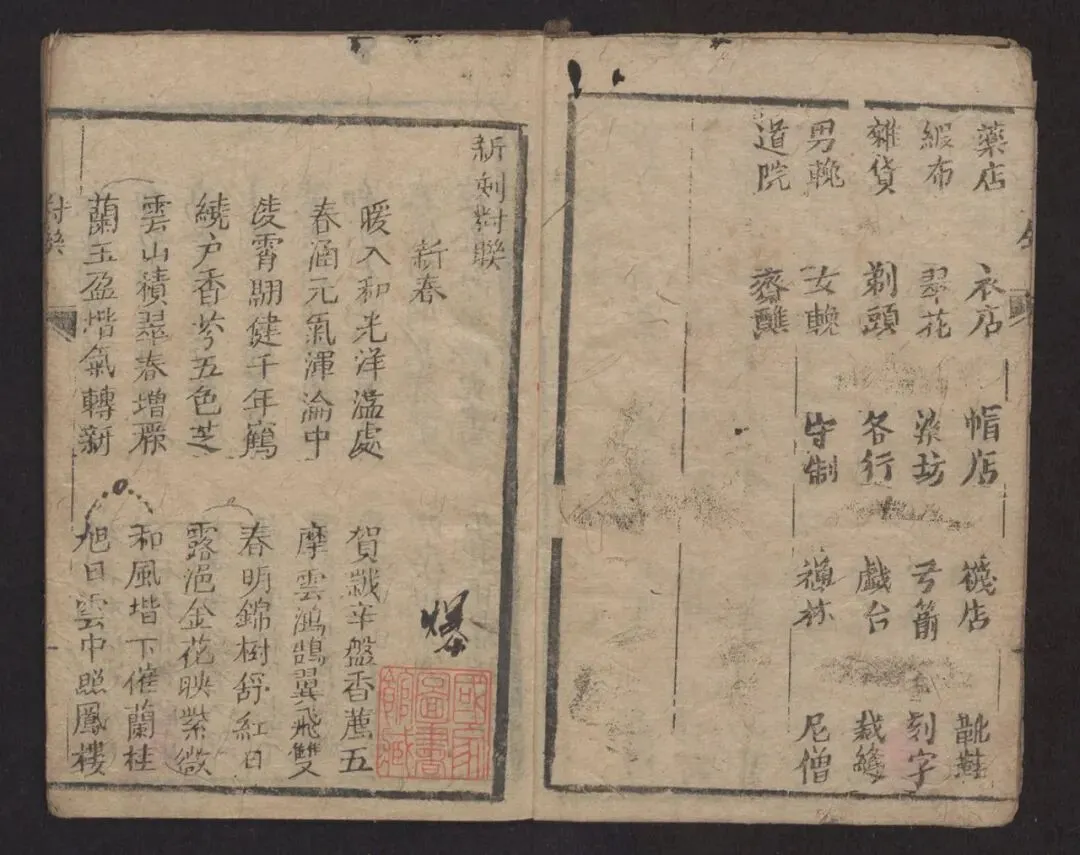 藥店 衣店 帽店 襪店 靴鞋
緞布 翠花 染坊 弓箭 刻字
雜貨 剃頭 各行 戲台 裁縫
男輓 女輓 守制 禪林 尼僧
道院 齋醮
新刻对聯
新春
爆
國家圖書館藏
暖入和光洋溢處 賀辛盤香薦五
春涵元氣渾淪中 摩雲鴻鵠翼飛雙
凌霄翮健千年鶴 春明錦樹舒紅日
繞户香兮五色芝 露浥金花映紫微
雲山積翠春增麗 和風堦下催蘭桂
蘭玉盈堦氣轉新 旭日雲中照鳳樓